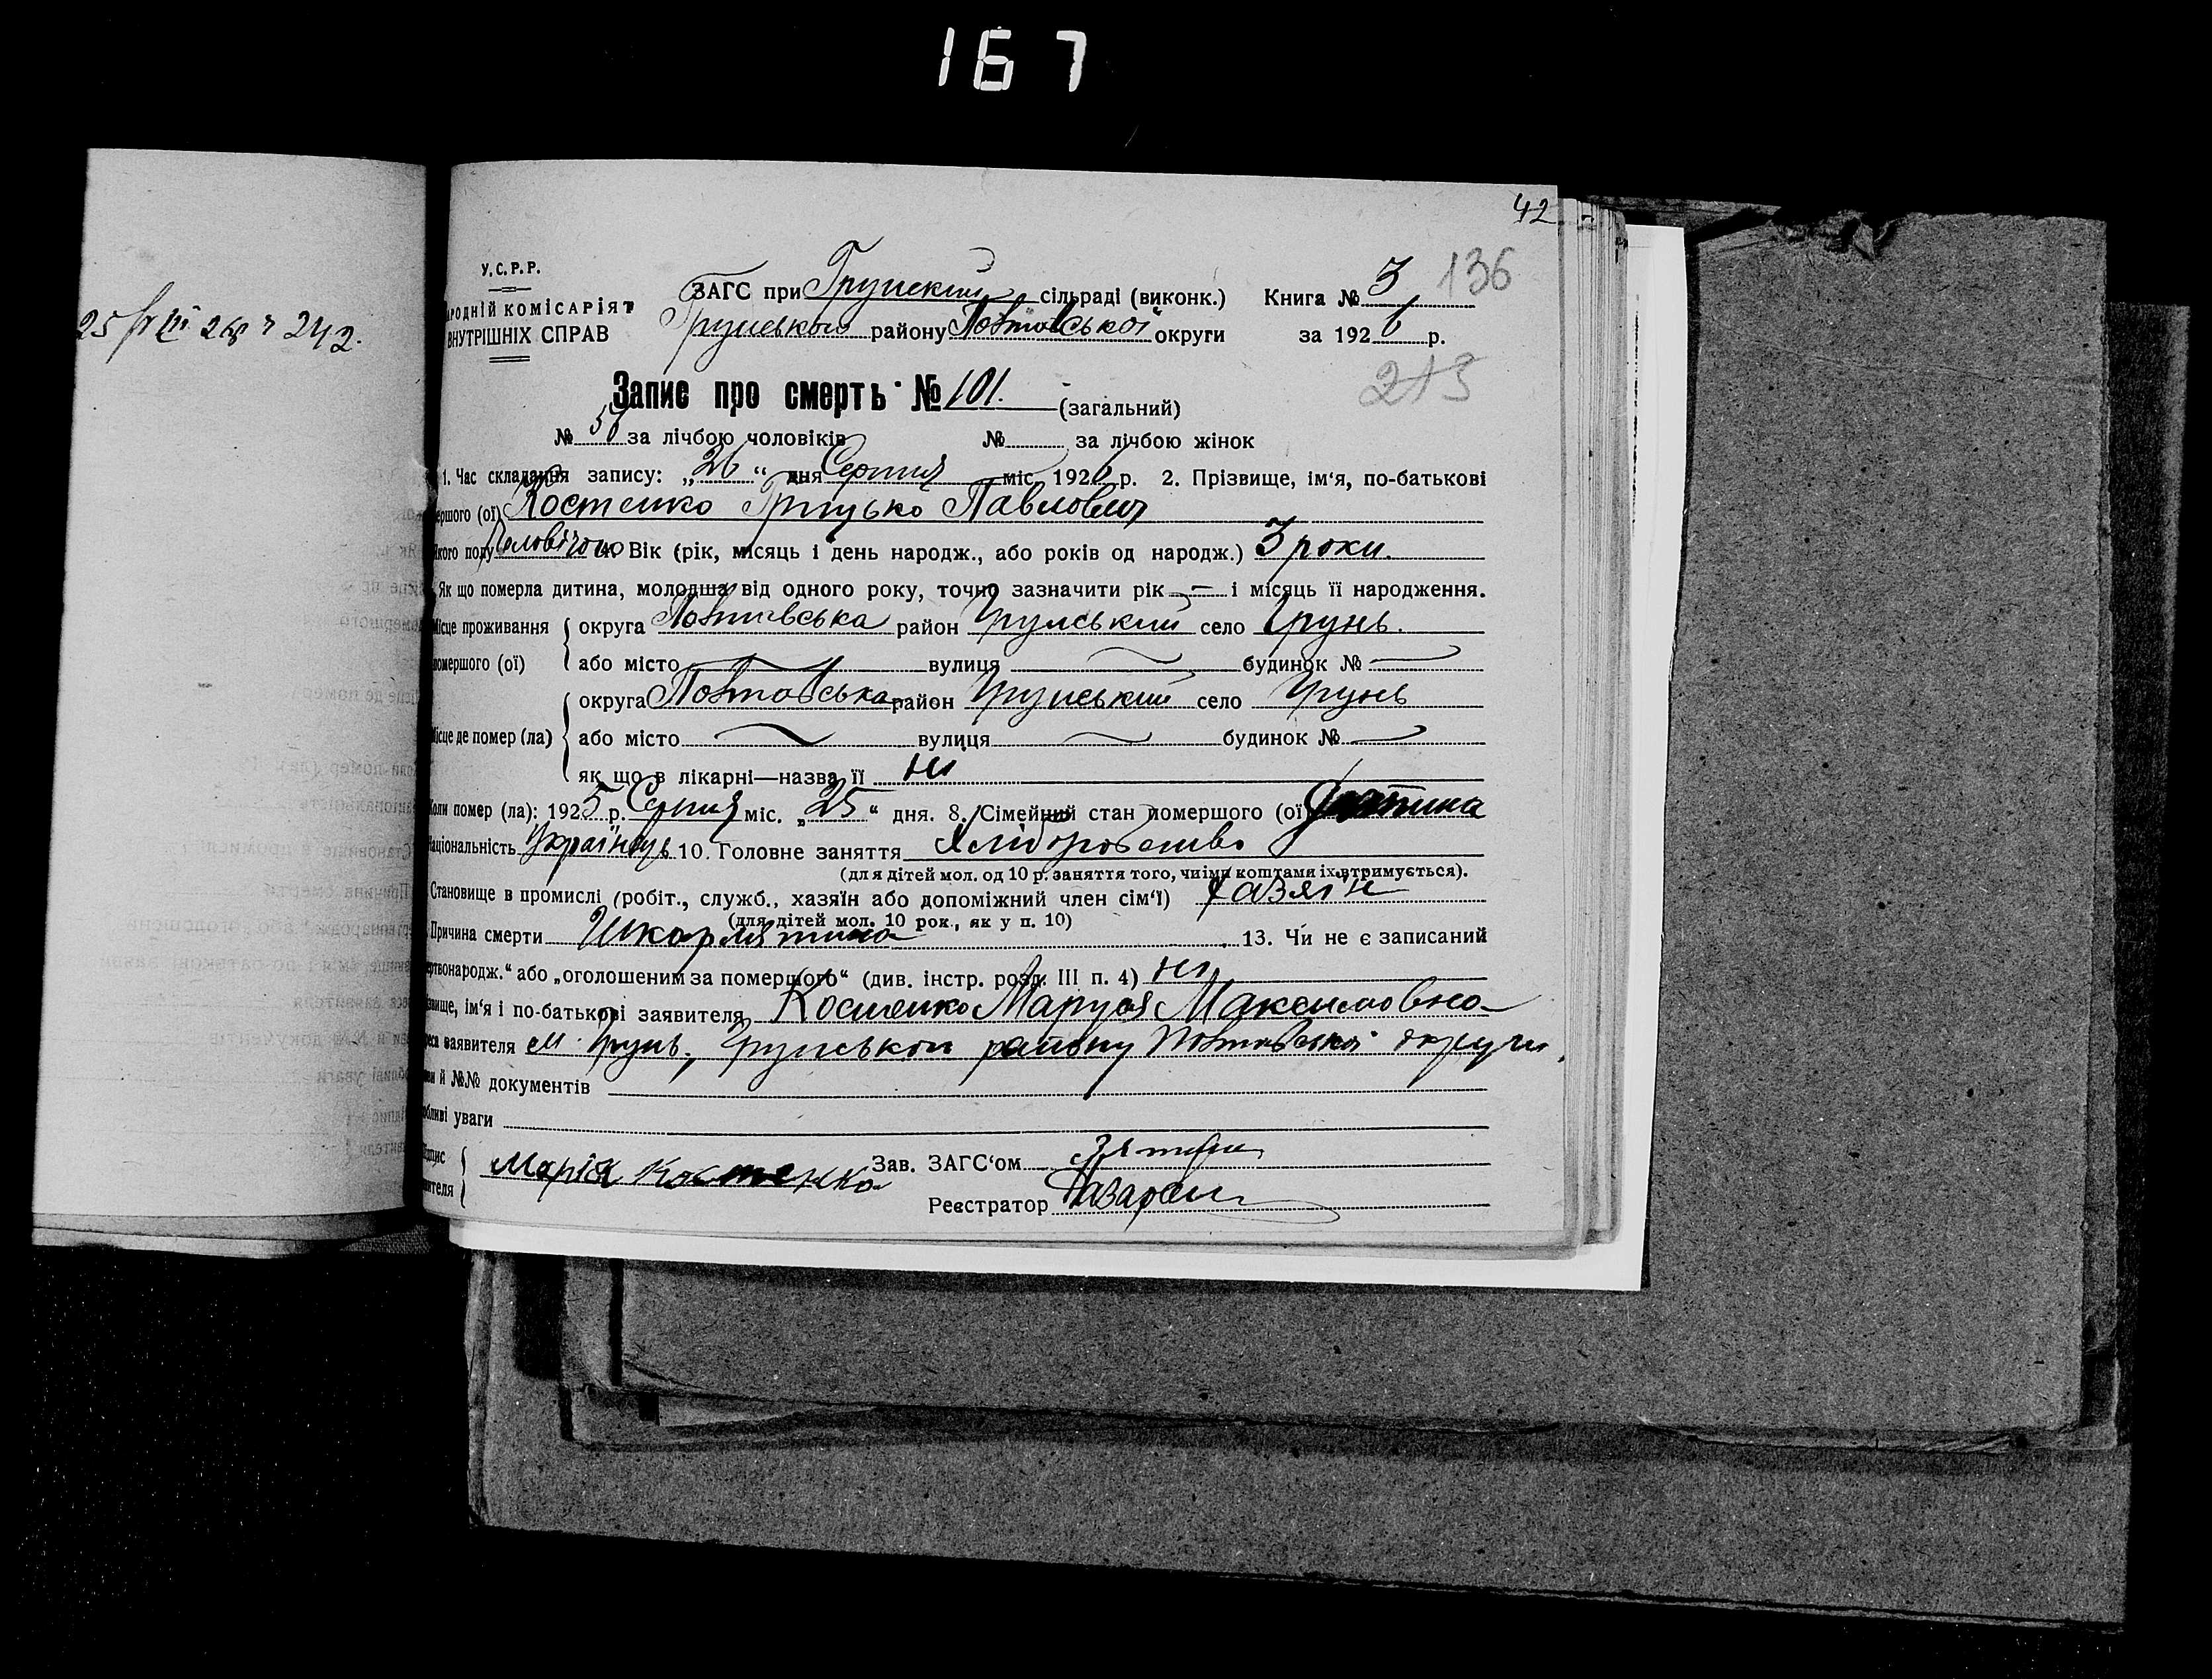 167
42
У.С.Р.Р.
ЗАГС при Грунський сільраді (виконк.) Книга № 3 136
АРОДНІЙ КОМІСАРІЯТ
ВНУТРІШНІХ СПРАВ
Грунського району Полтавської округи за 1926 р.
213
Запис про смерть № 101. (загальний)
№ 56 за лічбою чоловіків № за лічбою жінок
1. Час складання запису: „26“ дня Серпня міс. 1926 р. 2. Прізвище, ім‘я, по-батькові
ершого (ої) Костенко Грицько Павлович
якого полу Чоловічого 4. Вік (рік, місяць і день народж., або років од народж.) 3 роки.
Як що померла дитина, молодша від одного року, точно зазначити рік — і місяць її народження.
Місце проживання округа Полтавська район Грунський село Грунь.
помершого (ої) або місто — вулиця — будинок № —
округа Полтавська район Грунський село Грунь
Місце де помер (ла) або місто — вулиця — будинок № —
як що в лікарні—назва її ні
Коли помер (ла): 1925 р. Серпня міс. „25“ дня. 8. Сімейний стан помершого (ої) дитина
Національність Українець 10. Головне заняття Хліборобство
(для дітей мол. од 10 р. заняття того, чиїми коштами їх втримується).
Становище в промислі (робіт., служб., хазяїн або допоміжний член сім‘ї) хазяїн
(для дітей мол. 10 рок., як у п. 10)
Причина смерти Шкорлятина 13. Чи не є записаний
ертвонародж.“ або „оголошеним за помершого“ (див. інстр. розд. III п. 4) ні
звище, ім‘я і по-батькові заявителя Костенко Маруся Максимовна
реса заявителя м. Грунь, Грунського району Полтавської округи.
ви й №№ документів
обливі уваги
Підпис Марія Костенко Зав. ЗАГС‘ом
вителя Реєстратор